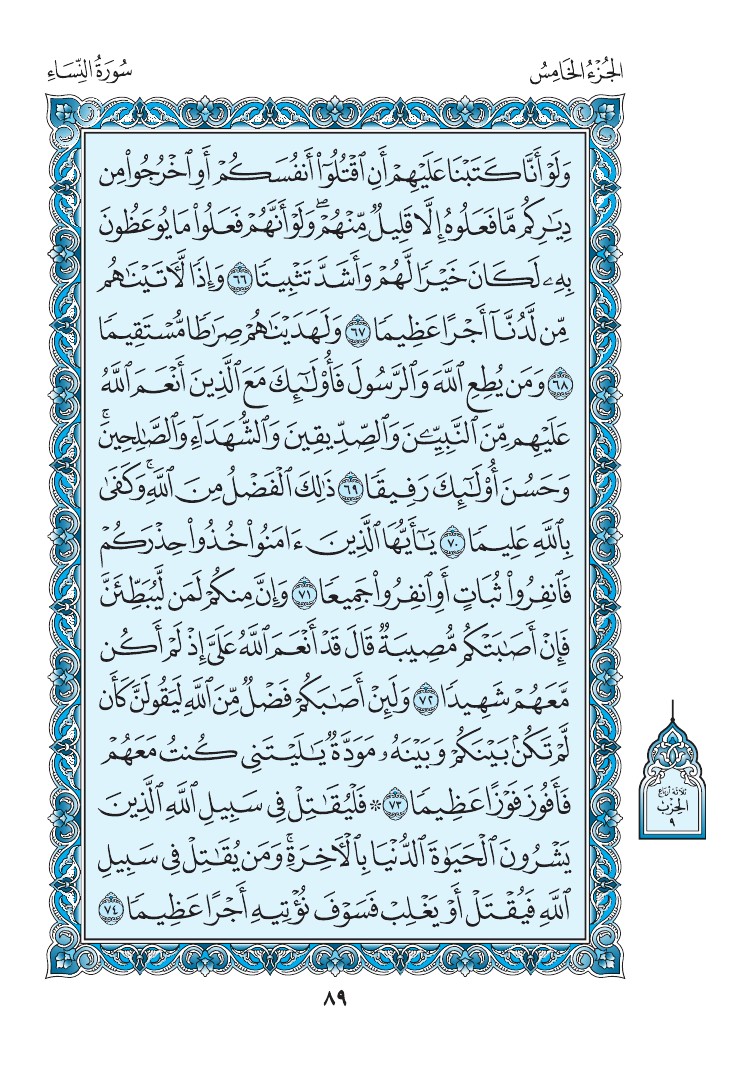 الجُزْءُ الخَامِسُ
سُورَةُ النِّسَاءِ
وَلَوۡ أَنَّا كَتَبۡنَا عَلَيۡهِمۡ أَنِ ٱقۡتُلُوٓاْ أَنفُسَكُمۡ أَوِ ٱخۡرُجُواْ مِن
دِيَٰرِكُم مَّا فَعَلُوهُ إِلَّا قَلِيلٞ مِّنۡهُمۡۖ وَلَوۡ أَنَّهُمۡ فَعَلُواْ مَا يُوعَظُونَ
بِهِۦ لَكَانَ خَيۡرٗا لَّهُمۡ وَأَشَدَّ تَثۡبِيتٗا ٦٦ وَإِذٗا لَّأٓتَيۡنَٰهُم
مِّن لَّدُنَّآ أَجۡرًا عَظِيمٗا ٦٧ وَلَهَدَيۡنَٰهُمۡ صِرَٰطٗا مُّسۡتَقِيمٗا
٦٨ وَمَن يُطِعِ ٱللَّهَ وَٱلرَّسُولَ فَأُوْلَٰٓئِكَ مَعَ ٱلَّذِينَ أَنۡعَمَ ٱللَّهُ
عَلَيۡهِم مِّنَ ٱلنَّبِيِّـۧنَ وَٱلصِّدِّيقِينَ وَٱلشُّهَدَآءِ وَٱلصَّٰلِحِينَۚ
وَحَسُنَ أُوْلَٰٓئِكَ رَفِيقٗا ٦٩ ذَٰلِكَ ٱلۡفَضۡلُ مِنَ ٱللَّهِۚ وَكَفَىٰ
بِٱللَّهِ عَلِيمٗا ٧٠ يَٰٓأَيُّهَا ٱلَّذِينَ ءَامَنُواْ خُذُواْ حِذۡرَكُمۡ
فَٱنفِرُواْ ثُبَاتٍ أَوِ ٱنفِرُواْ جَمِيعٗا ٧١ وَإِنَّ مِنكُمۡ لَمَن لَّيُبَطِّئَنَّ
فَإِنۡ أَصَٰبَتۡكُم مُّصِيبَةٞ قَالَ قَدۡ أَنۡعَمَ ٱللَّهُ عَلَيَّ إِذۡ لَمۡ أَكُن
مَّعَهُمۡ شَهِيدٗا ٧٢ وَلَئِنۡ أَصَٰبَكُمۡ فَضۡلٞ مِّنَ ٱللَّهِ لَيَقُولَنَّ كَأَن
لَّمۡ تَكُنۢ بَيۡنَكُمۡ وَبَيۡنَهُۥ مَوَدَّةٞ يَٰلَيۡتَنِي كُنتُ مَعَهُمۡ
فَأَفُوزَ فَوۡزًا عَظِيمٗا ٧٣ ۞ فَلۡيُقَٰتِلۡ فِي سَبِيلِ ٱللَّهِ ٱلَّذِينَ
يَشۡرُونَ ٱلۡحَيَوٰةَ ٱلدُّنۡيَا بِٱلۡأٓخِرَةِۚ وَمَن يُقَٰتِلۡ فِي سَبِيلِ
ٱللَّهِ فَيُقۡتَلۡ أَوۡ يَغۡلِبۡ فَسَوۡفَ نُؤۡتِيهِ أَجۡرًا عَظِيمٗا ٧٤
ثلاثة أرباع
الحزب
٩
٨٩